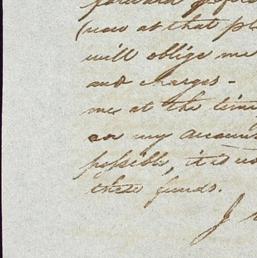 forward
(now at that pl
will oblige me
and charges -
me at the time
on my accoun
possible, it is
these funds.
J